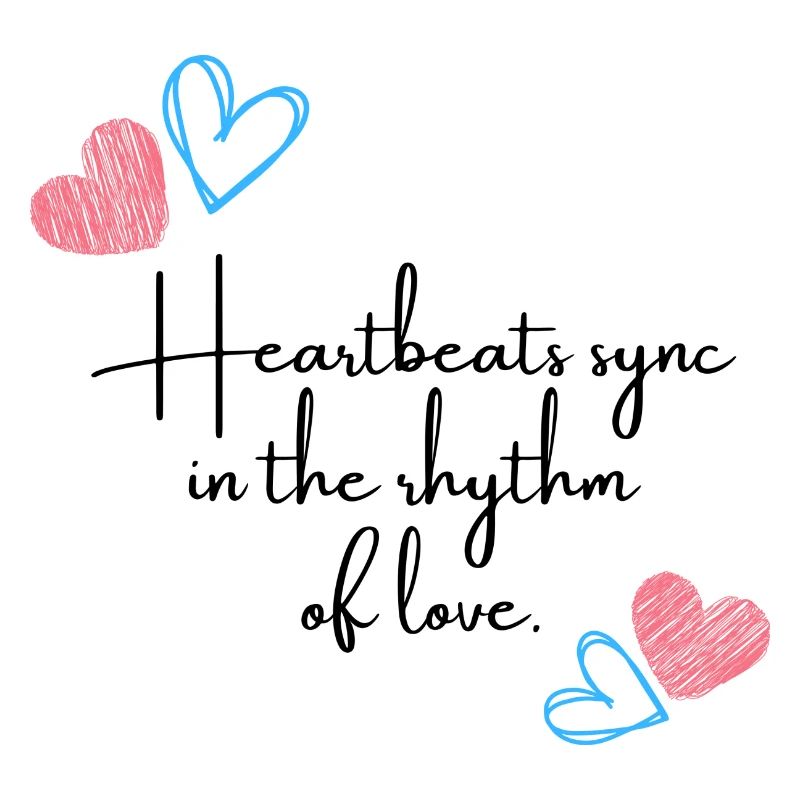 Heartbeats sync
in the rhythm
of love.